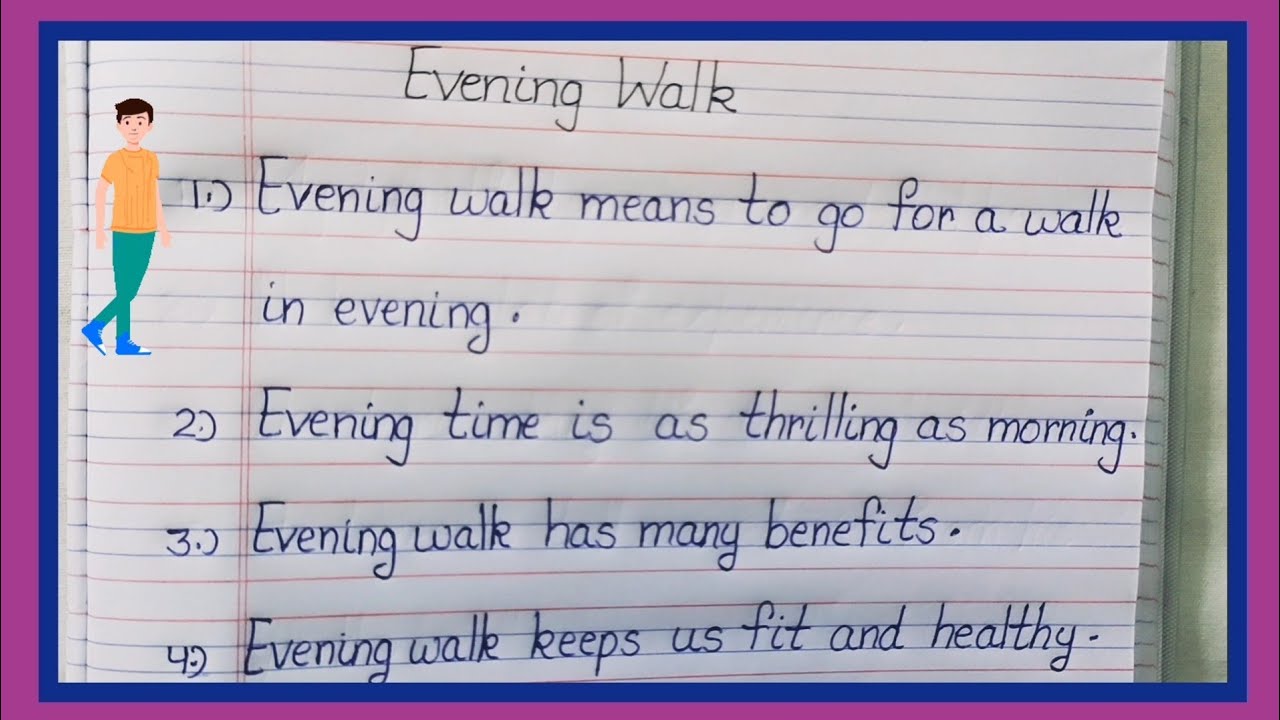 Evening Walk
1.) Evening walk means to go for a walk
in evening.
2.) Evening time is as thrilling as morning.
3.) Evening walk has many benefits.
4.) Evening walk keeps us fit and healthy.